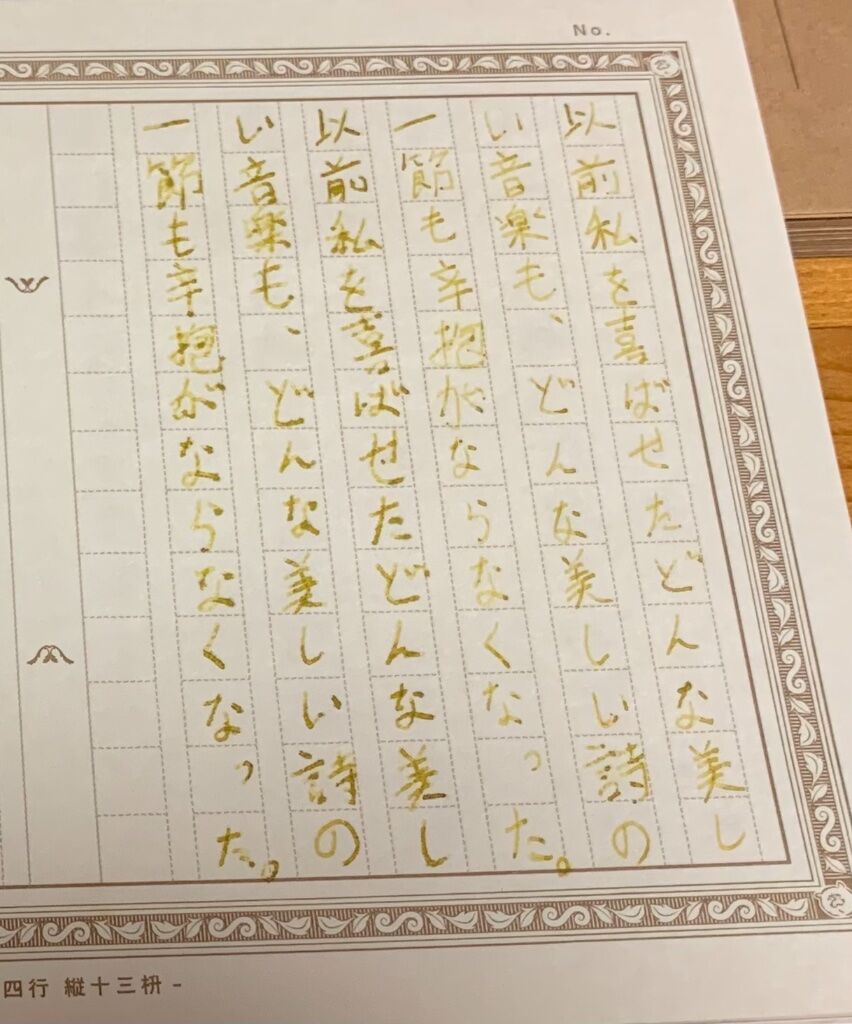 No.
以前私を喜ばせたどんな美し
い音楽も、どんな美しい詩の
一節も辛抱がならなくなった。
以前私を喜ばせたどんな美し
い音楽も、どんな美しい詩の
一節も辛抱がならなくなった。
四行 縦十三枡 -